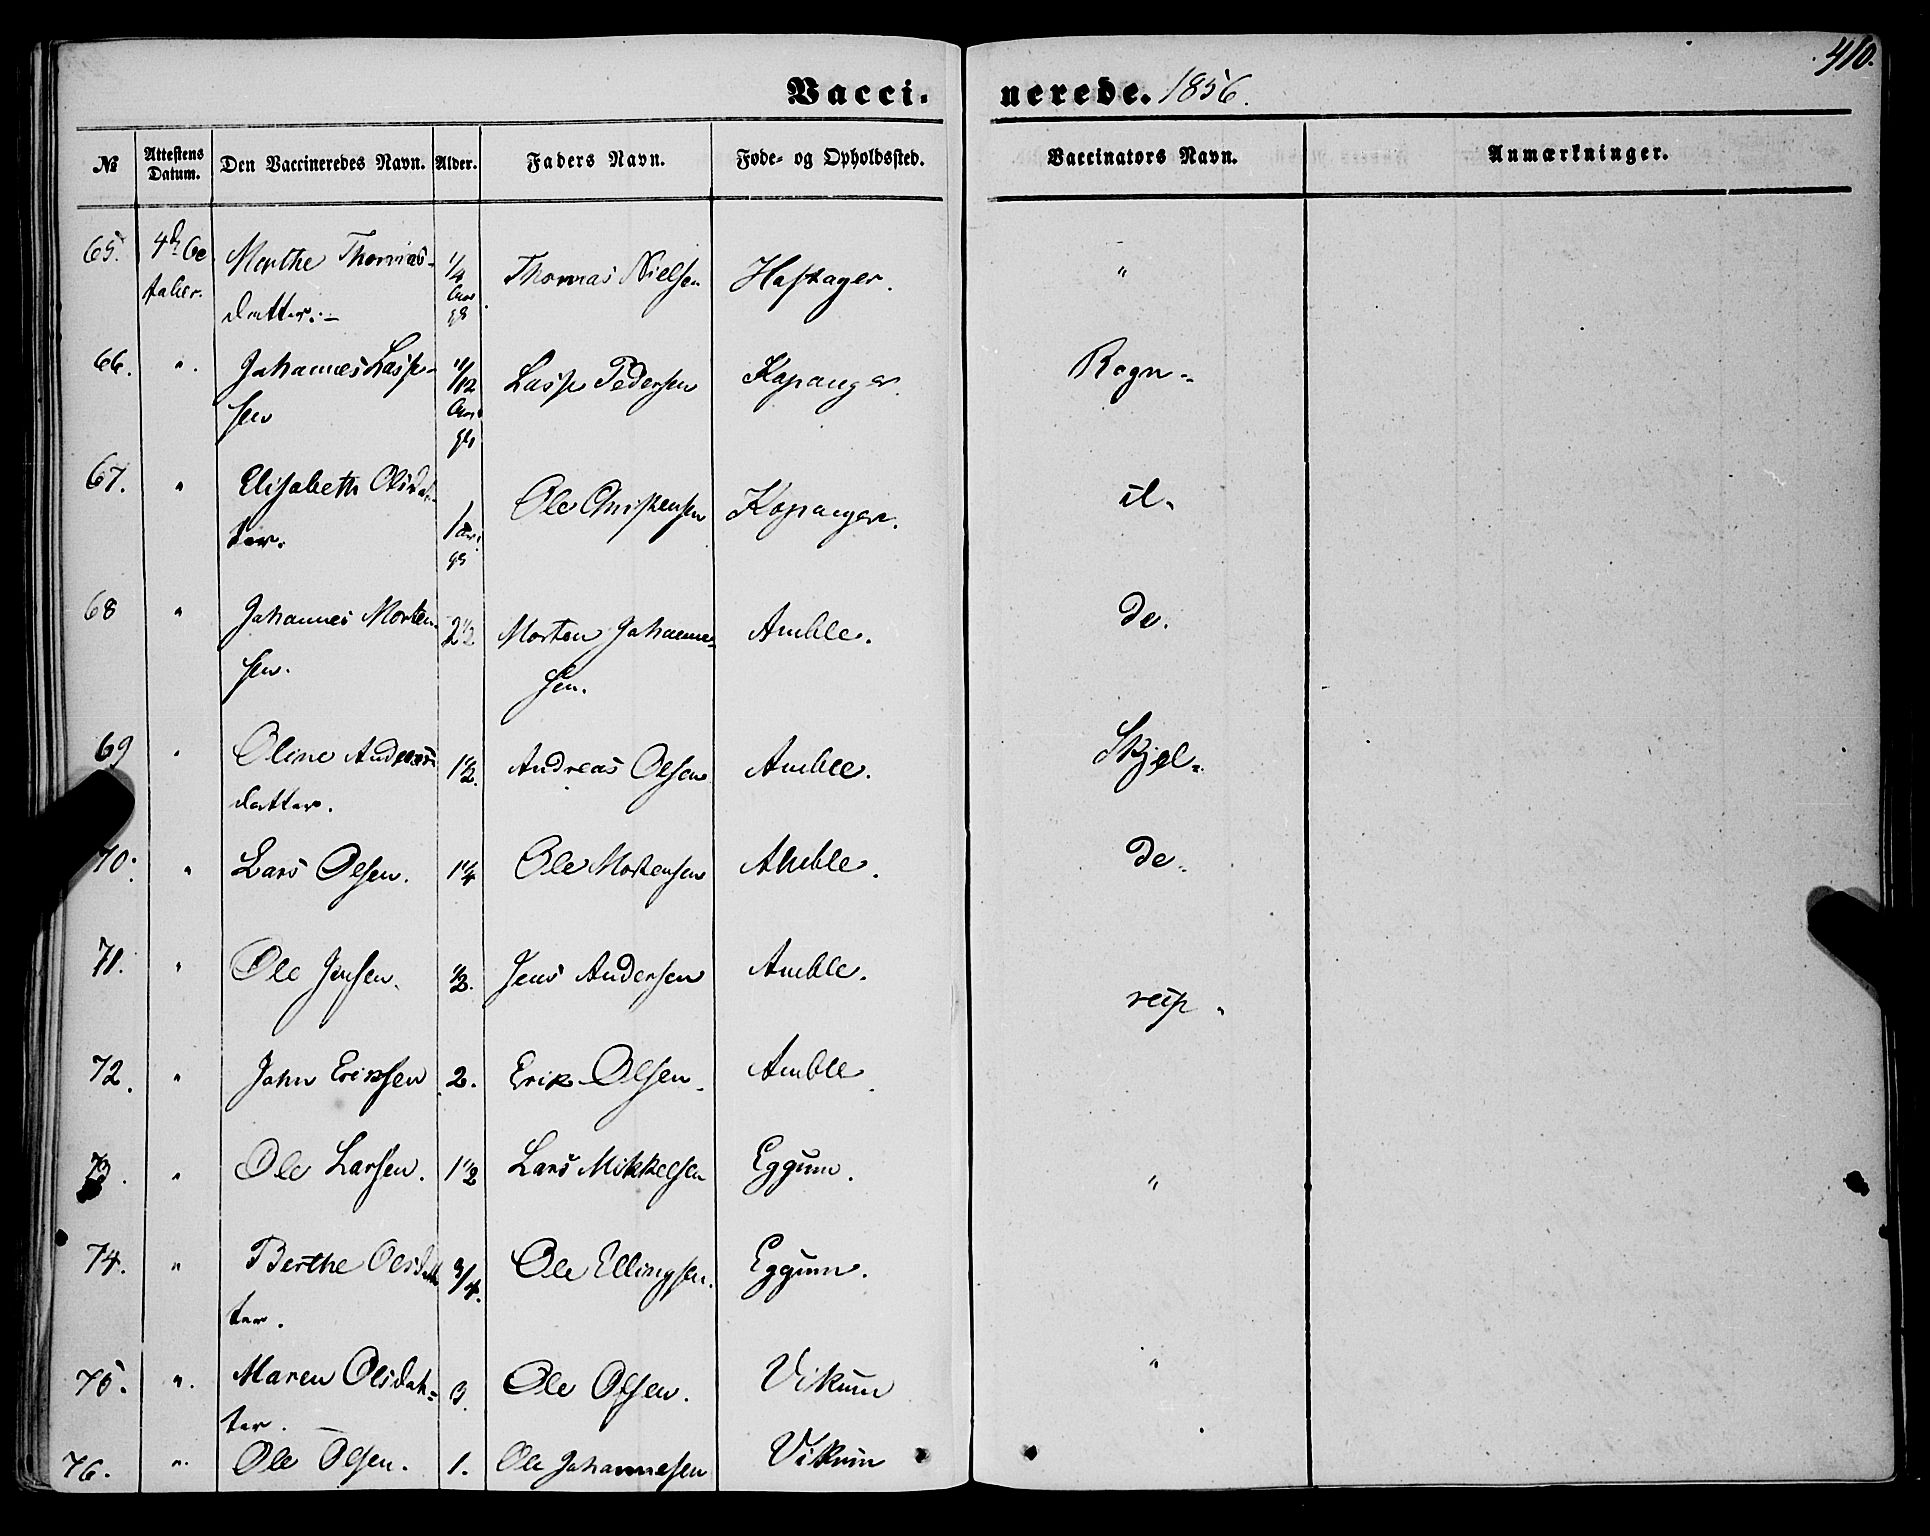 410.
Vacci-nerede. 1856.
№ Attestens Datum. Den Vaccineredes Navn. Alder. Faders Navn. Føde- og Opholdssted. Vaccinators Navn. Anmærkninger.
65. 4de Oc Marthe Thomas- 1/4 Thomas Nielsen "
tober. datter.
66. " Johannes Lasse- 11/12 Lasse Pedersen Kapanger. Rogn-
sen
67. " Elisabeth Olsdat- 1 Ole Christensen Kapanger. il-
ter.
68 " Johannes Morten- 2 1/2 Morten Johanne- Amble. de.
sen. sen.
69 " Oline Andreas- 1 1/2. Andreas Olsen Amble. Skjel-
datter.
70. " Lars Olsen. 1 1/4 Ole Mortensen Amble. de-
71. " Ole Jensen. 1/2. Jens Andersen Amble.
72. " John Eriksen 2. Erik Olsen. Amble.
73. " Ole Larsen. 1 1/2 Lars Mikkelsen Eggum. "
74. " Berthe Olsdat 3/4. Ole Ellingsen. Eggum.
ter.
75. " Maren Olsdat- 3. Ole Olsen. Vikum "
ter.
76. " Ole Olsen. 1. Ole Johannesen Vikum